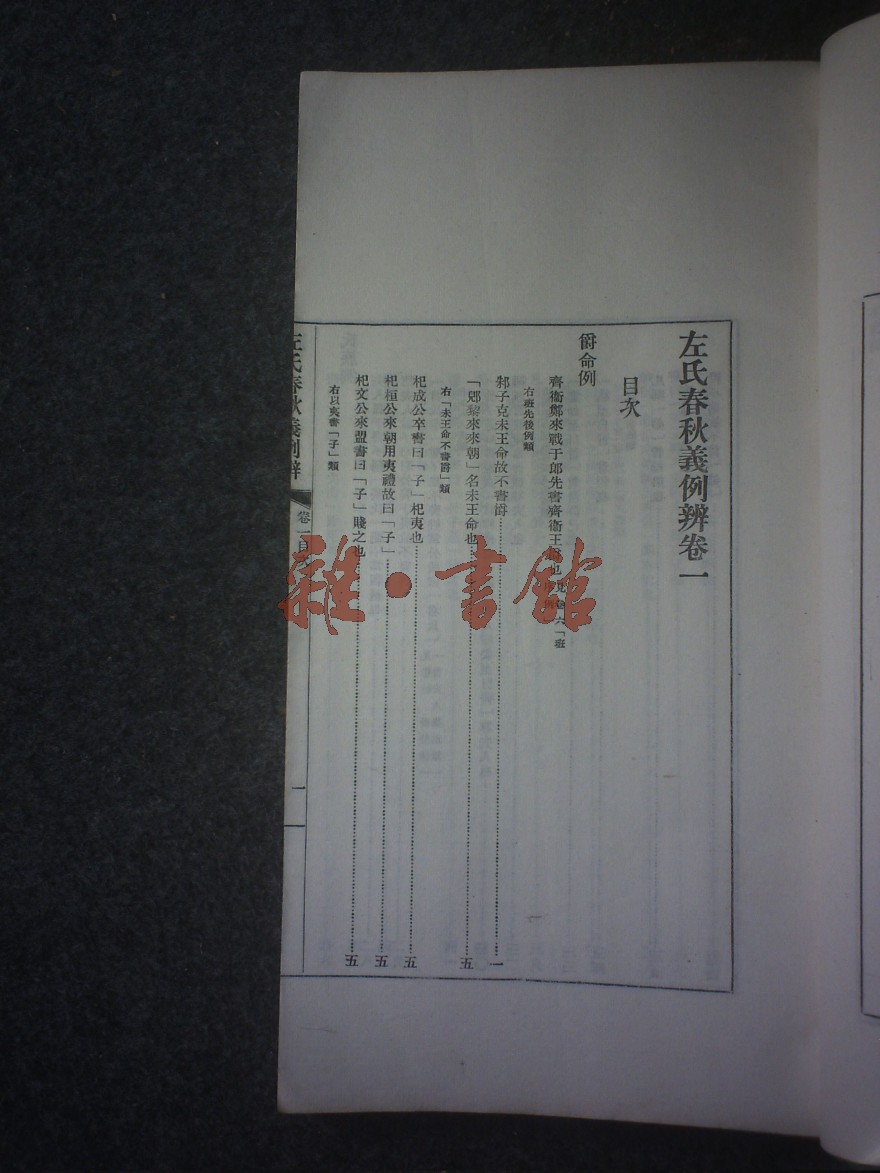 左氏春秋義例辨卷一
目次
爵命例
齊衞鄭來戰于郎先書齊衞王爵也 六「班
右班先後例類
邾子克未王命故不書爵 一
「郳黎來來朝」名未王命也 五
右「未王命不書爵」類
杞成公卒書曰「子」杞夷也 五
杞桓公來朝用夷禮故曰「子」 五
杞文公來盟書曰「子」賤之也 五
右以夷書「子」類
左氏春秋義例辨
卷一目次
一
雜·書館